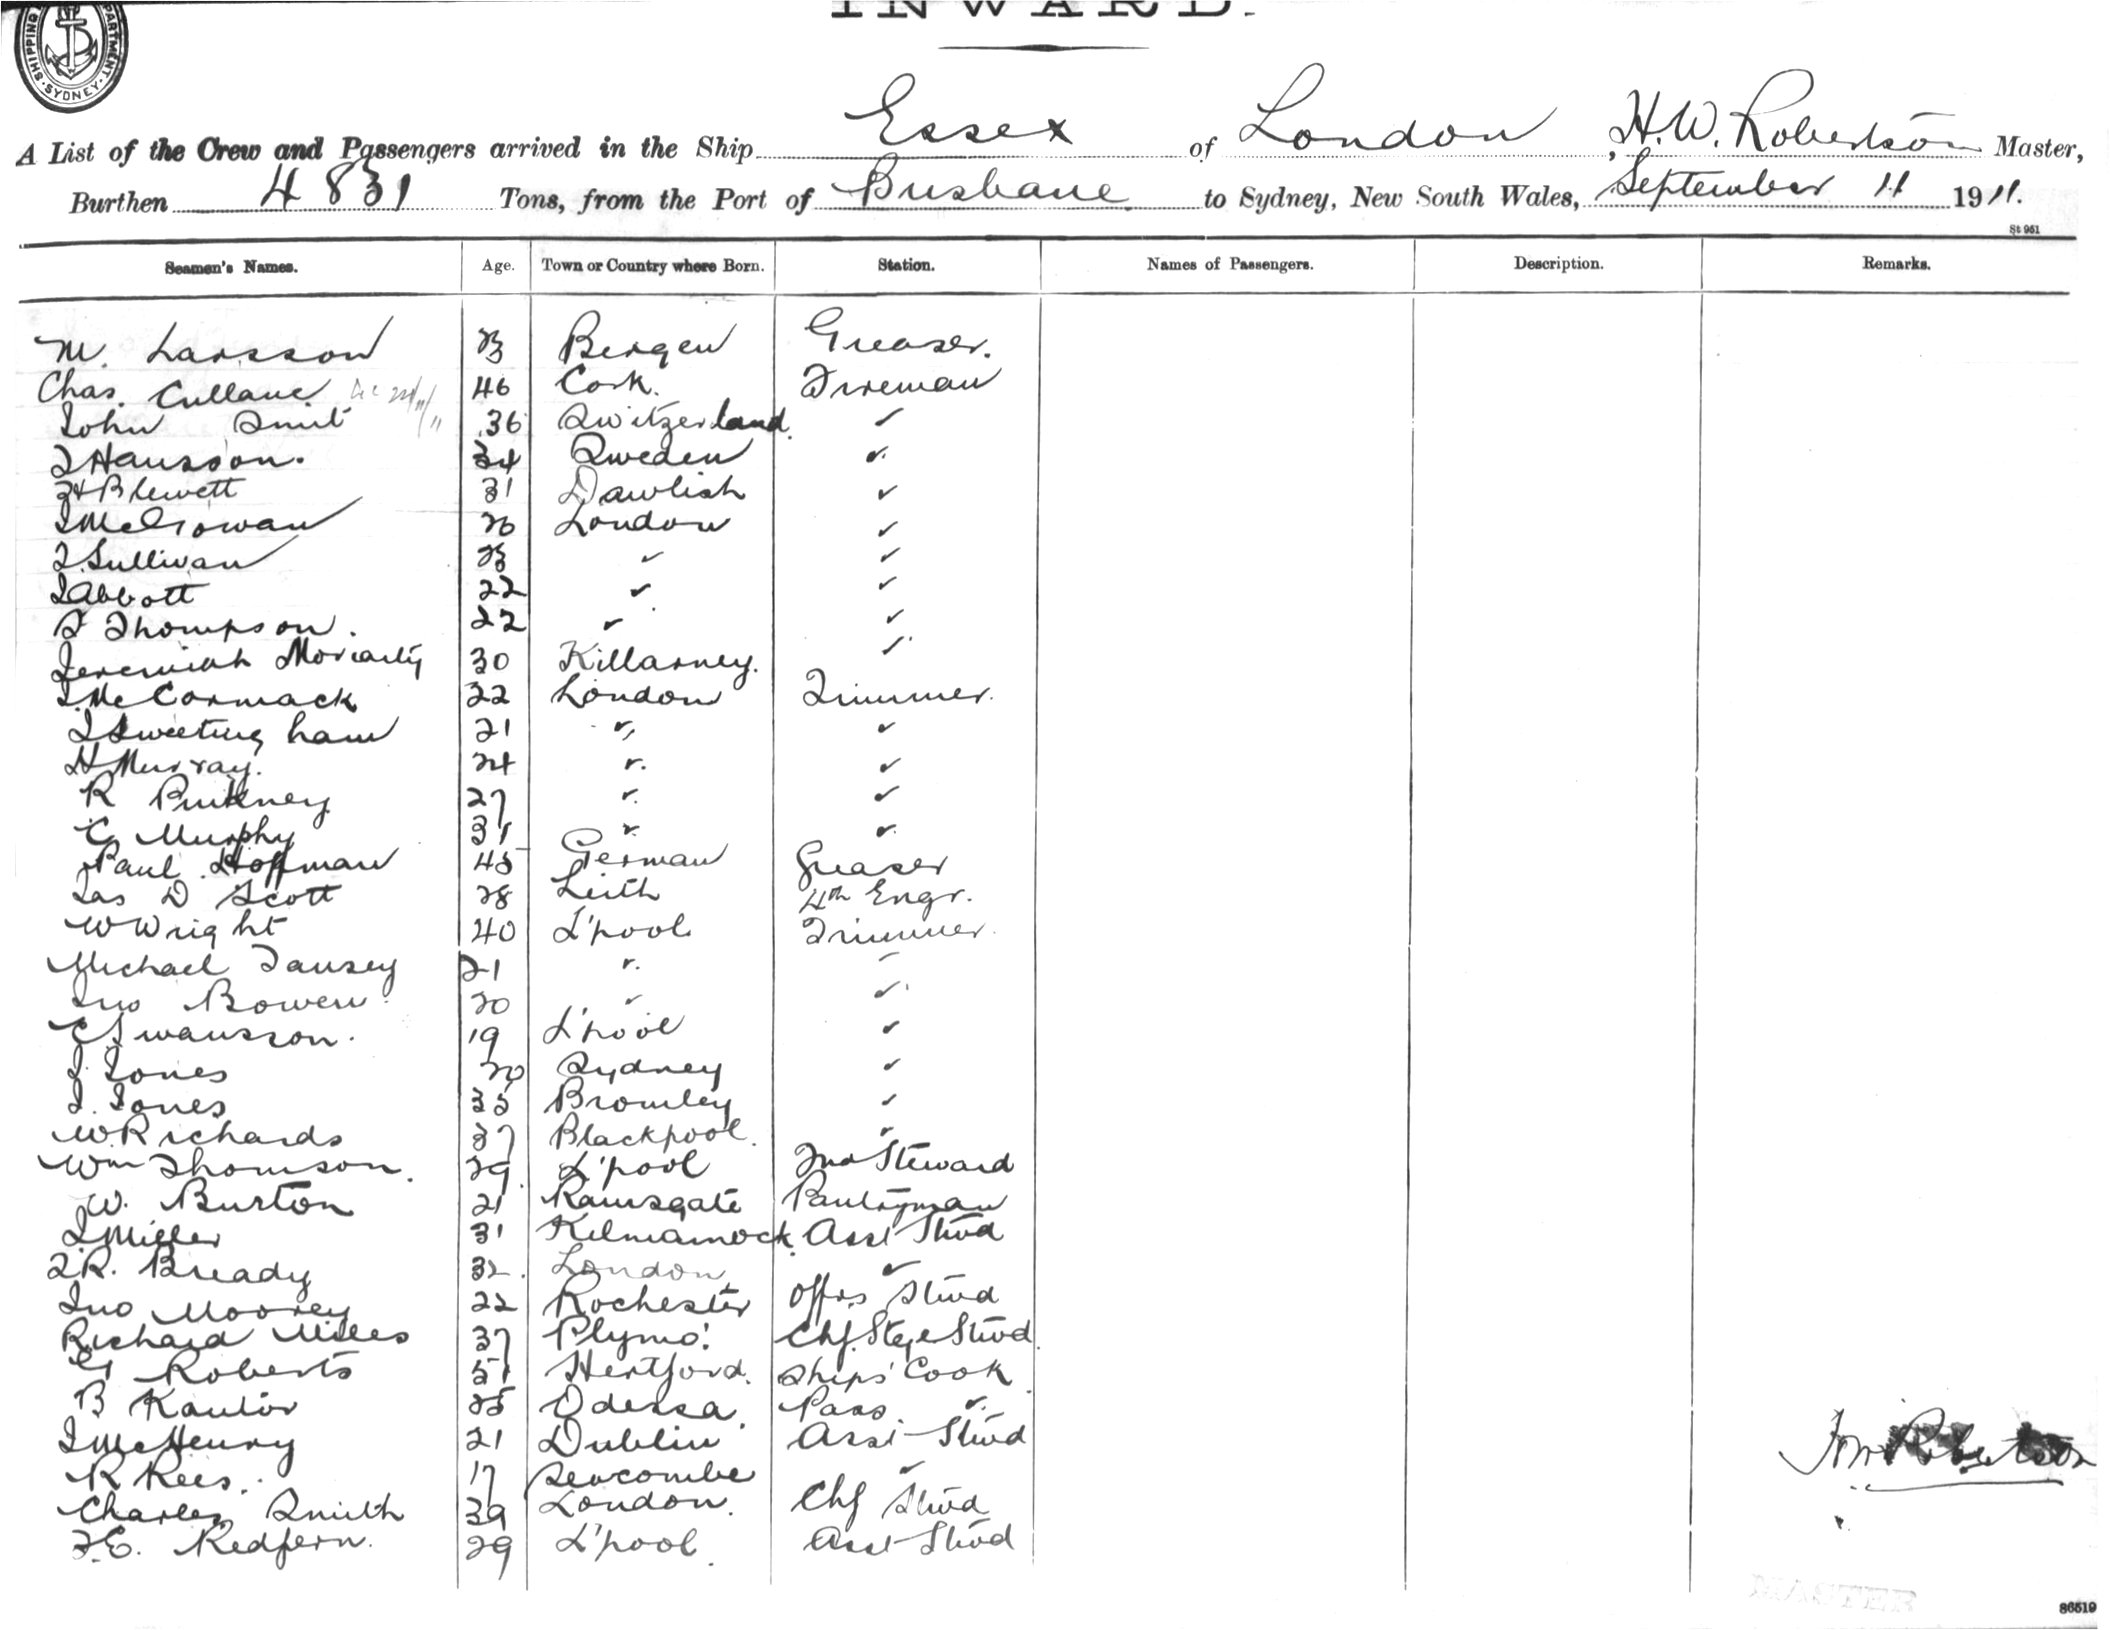 INWARD.
SHIPPING DEPARTMENT SYDNEY
A List of the Crew and Passengers arrived in the Ship Essex of London, H.W. Robertson Master,
Burthen 4831 Tons, from the Port of Brisbane to Sydney, New South Wales, September 11 1911.
St 961
Seamen's Names. Age. Town or Country where Born. Station. Names of Passengers. Description. Remarks.
M. Larsson 23 Bergen Greaser.
Chas. Cullane 46 Cork. Fireman
John Smit 36 Switzerland. ✓
Hansson. 34 Sweden ✓
Blewett 31 Dawlish ✓
J McGowan 26 London ✓
J. Sullivan 23 ✓ ✓
J Abbott 22 ✓ ✓
Thompson. 22 ✓ ✓
Jeremiah Moriarty 30 Killarney. ✓
J. McCormack 22 London Trimmer.
J Sweetingham 21 ✓ ✓
H Murray. 24 ✓ ✓
R Pinkney 27 ✓ ✓
C Murphy 31 ✓ ✓
Paul Hoffman 45 German Greaser
Jas D Scott 28 Leith 4th Engr.
W Wright 40 L'pool Trimmer.
Michael Tansey 21 ✓ ✓
Jno Bowen 20 ✓ ✓
C Swansson. 19 L'pool ✓
J. Jones 20 Sydney ✓
J. Jones 35 Bromley ✓
W. Richards 37 Blackpool. ✓
Wm Thomson. 29 L'pool 2nd Steward
W. Burton 21 Ramsgate Pantryman
J Miller 31 Kilmarnock. Asst Stwd
Bready 32. London ✓
Jno Moorey 22 Rochester Offrs Stwd
Richard Miles 37 Plymo'. Chf. Stge Stwd
G Roberts 51 Hertford. Ships' Cook
B Kantor 25 Odessa. Pass ✓
J McHenry 21 Dublin Asst Stwd
R Rees. 17 Seacombe ✓
Charles Smith 39 London. Chf Stwd
F.E. Redfern. 29 L'pool. Asst Stwd
Robertson
MASTER
86519